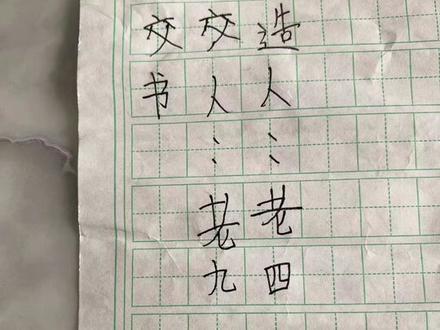 造人：老四
交人：老九
交书